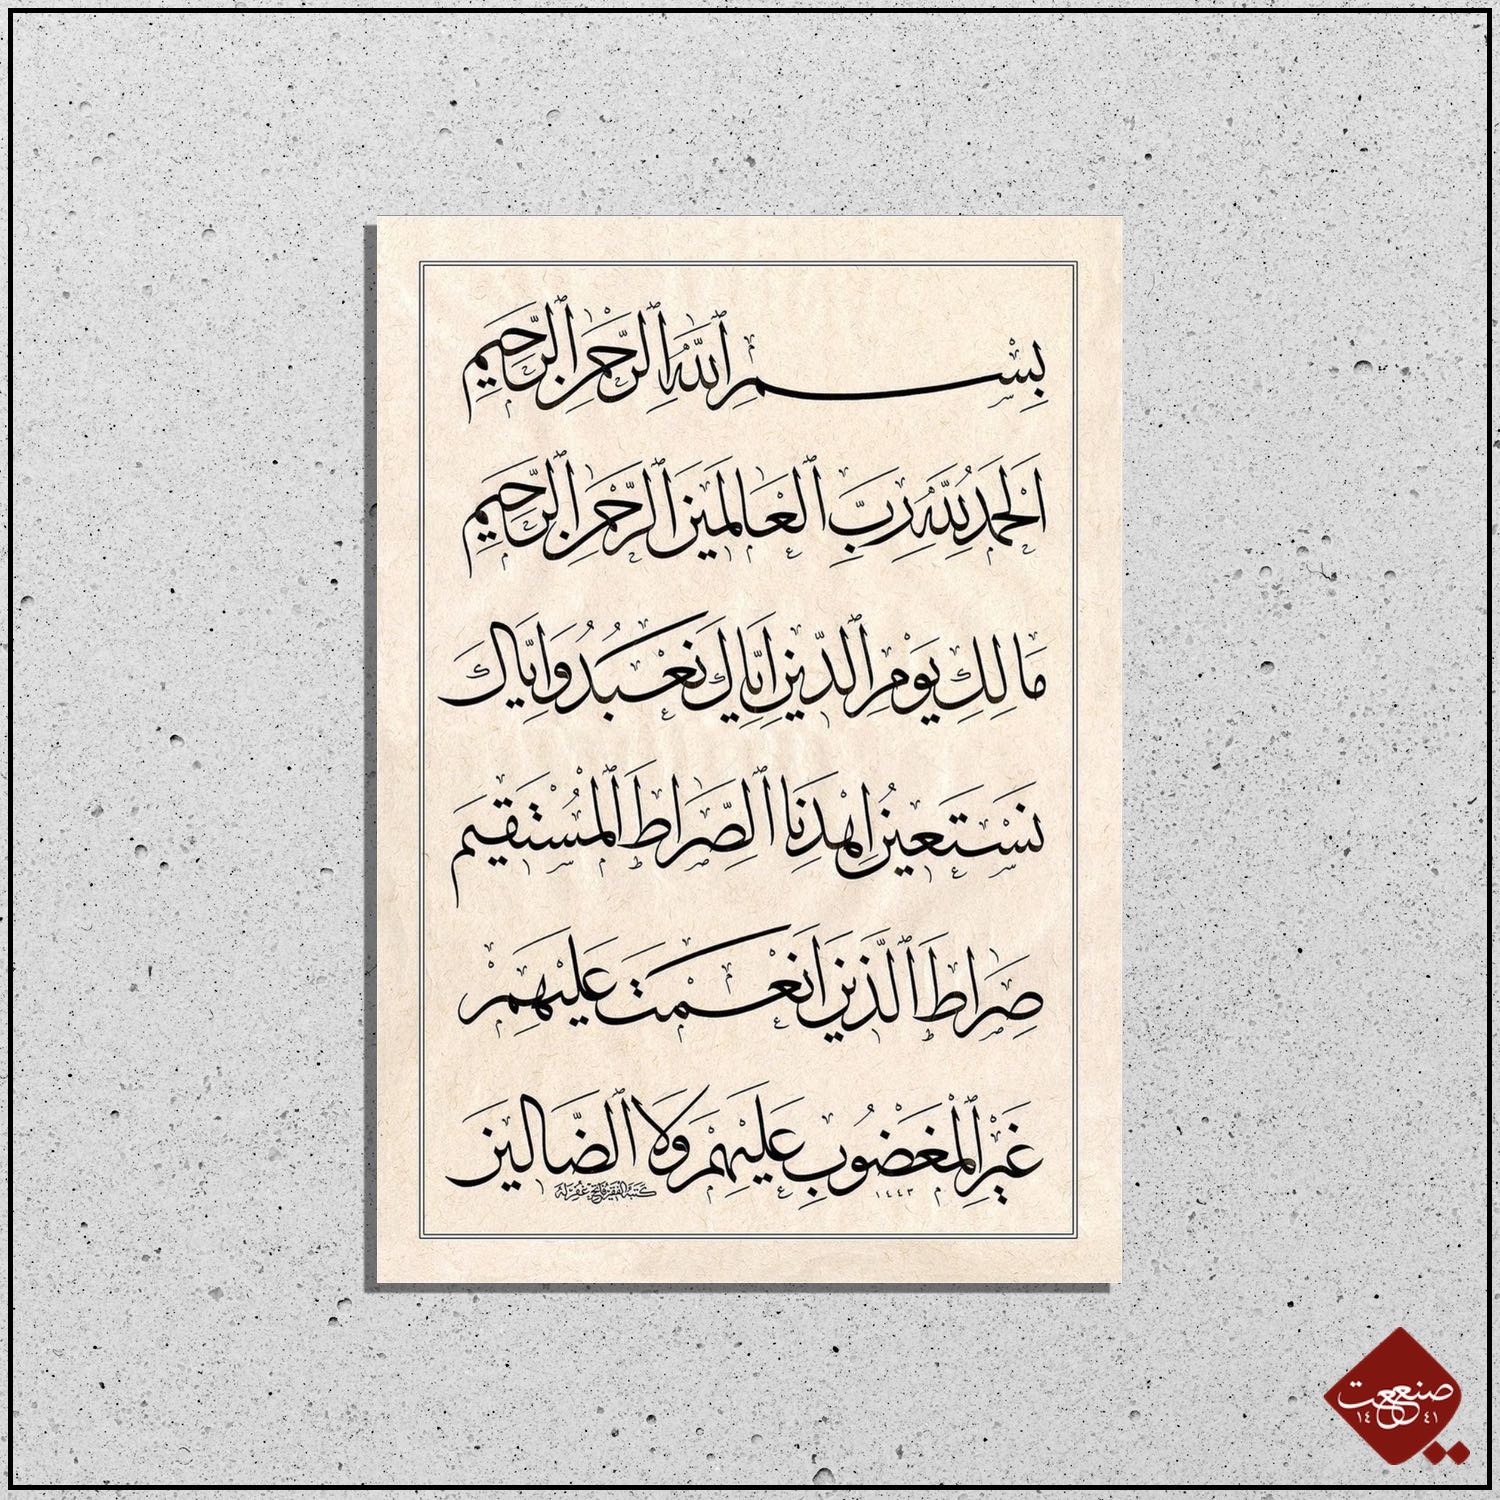 بِسْمِ ٱللّٰهِ ٱلرَّحْمٰنِ ٱلرَّحِيمِ
اَلْحَمْدُ لِلّٰهِ رَبِّ ٱلْعَالَمِينَ ٱلرَّحْمٰنِ ٱلرَّحِيمِ
مَالِكِ يَوْمِ ٱلدِّينِ اِيَّاكَ نَعْبُدُ وَاِيَّاكَ
نَسْتَعِينُ اِهْدِنَا ٱلصِّرَاطَ ٱلْمُسْتَقِيمَ
صِرَاطَ ٱلَّذِينَ اَنْعَمْتَ عَلَيْهِمْ
غَيْرِ ٱلْمَغْضُوبِ عَلَيْهِمْ وَلَا ٱلضَّالِّينَ
كتبه الفقير فاتح غفر له ١٤٤٣
صنعت
١٤٤١